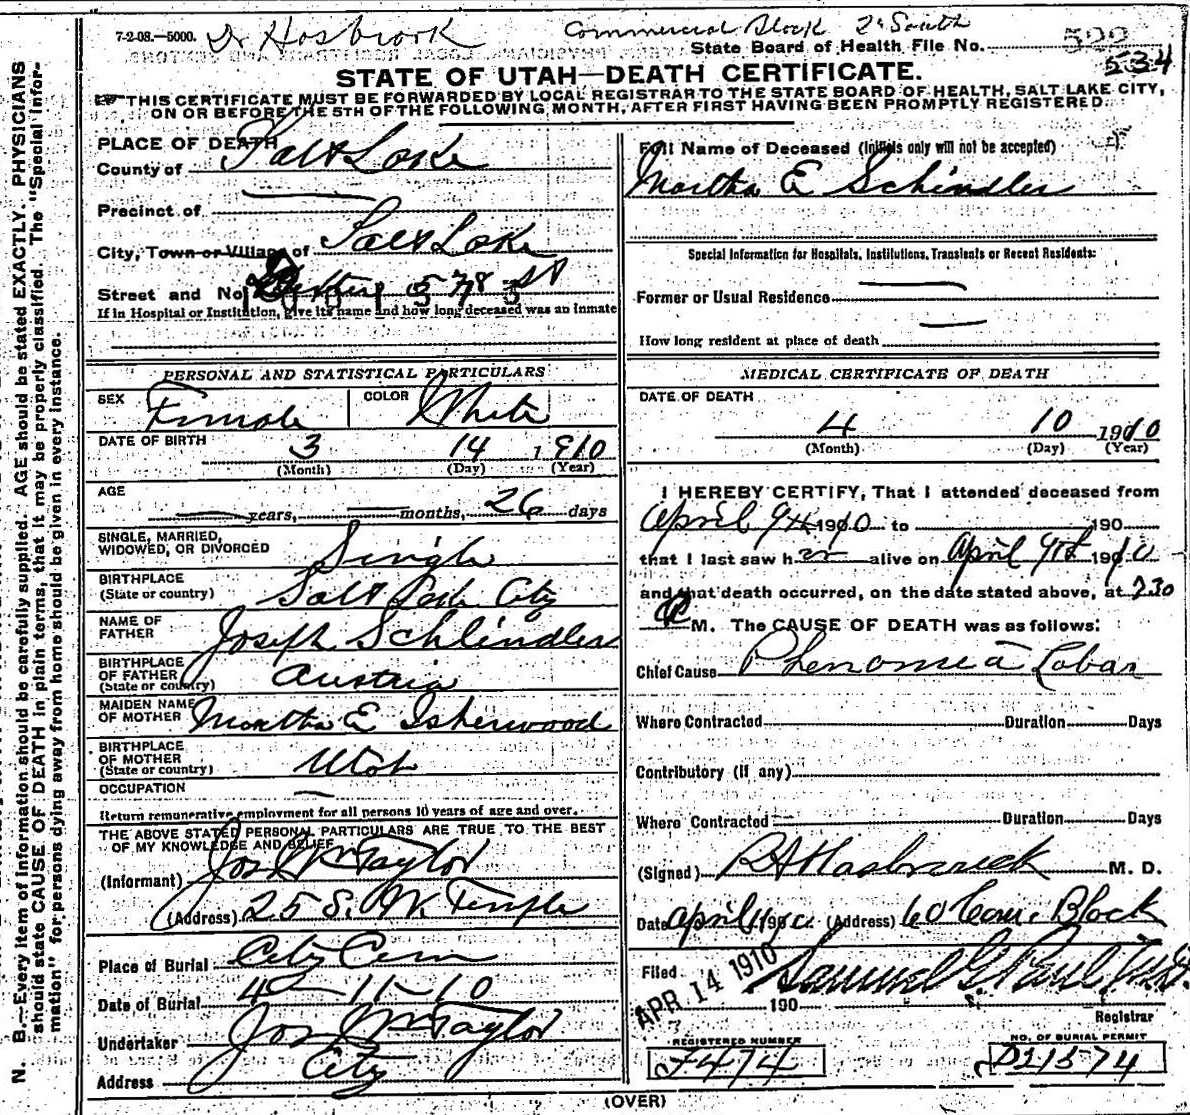 7-2-08.—5000. Dr Hosbrook Commercial Block 2d South
State Board of Health File No. 522
534
STATE OF UTAH—DEATH CERTIFICATE.
THIS CERTIFICATE MUST BE FORWARDED BY LOCAL REGISTRAR TO THE STATE BOARD OF HEALTH, SALT LAKE CITY,
ON OR BEFORE THE 5TH OF THE FOLLOWING MONTH, AFTER FIRST HAVING BEEN PROMPTLY REGISTERED.
N. B.—Every item of information should be carefully supplied. AGE should be stated EXACTLY. PHYSICIANS
should state CAUSE OF DEATH in plain terms, that it may be properly classified. The "Special Infor-
mation" for persons dying away from home should be given in every instance.
PLACE OF DEATH
County of Salt Lake
Precinct of
City, Town or Village of Salt Lake
Street and No. 578 St
If in Hospital or Institution, give its name and how long deceased was an inmate
PERSONAL AND STATISTICAL PARTICULARS
SEX Female COLOR White
DATE OF BIRTH 3 14 1910
(Month) (Day) (Year)
AGE
years, months, 26 days
SINGLE, MARRIED,
WIDOWED, OR DIVORCED Single
BIRTHPLACE
(State or country) Salt Lake City
NAME OF
FATHER Joseph Schlindler
BIRTHPLACE
OF FATHER
(State or country) Austria
MAIDEN NAME
OF MOTHER Martha E Isherwood
BIRTHPLACE
OF MOTHER
(State or country) Utah
OCCUPATION
Return remunerative employment for all persons 10 years of age and over.
THE ABOVE STATED PERSONAL PARTICULARS ARE TRUE TO THE BEST
OF MY KNOWLEDGE AND BELIEF
(Informant) Jos Wm Taylor
(Address) 25 S. W. Temple
Place of Burial City Cem
Date of Burial 4-11-10
Undertaker Jos Wm Taylor
Address City
Full Name of Deceased (Initials only will not be accepted)
Martha E Schindler
Special Information for Hospitals, Institutions, Transients or Recent Residents:
Former or Usual Residence
How long resident at place of death
MEDICAL CERTIFICATE OF DEATH
DATE OF DEATH
4 10 1910
(Month) (Day) (Year)
I HEREBY CERTIFY, That I attended deceased from
April 9th 1910 to 190
that I last saw her alive on April 9th 1910
and that death occurred, on the date stated above, at 2.30
P M. The CAUSE OF DEATH was as follows:
Chief Cause Phenomea Lobar
Where Contracted Duration Days
Contributory (if any)
Where Contracted Duration Days
(Signed) R A Hasbrouck M. D.
Date April 11 190 (Address) 60 Com. Block
Filed APR 14 1910 190 Samuel G. Paul
Registrar
REGISTERED NUMBER
F474
NO. OF BURIAL PERMIT
D21574
(OVER)